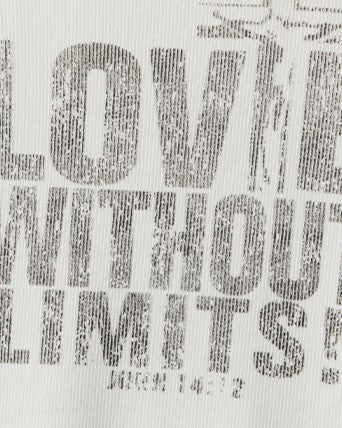 LOVE
WITHOUT
LIMITS!
JOHN 14:12